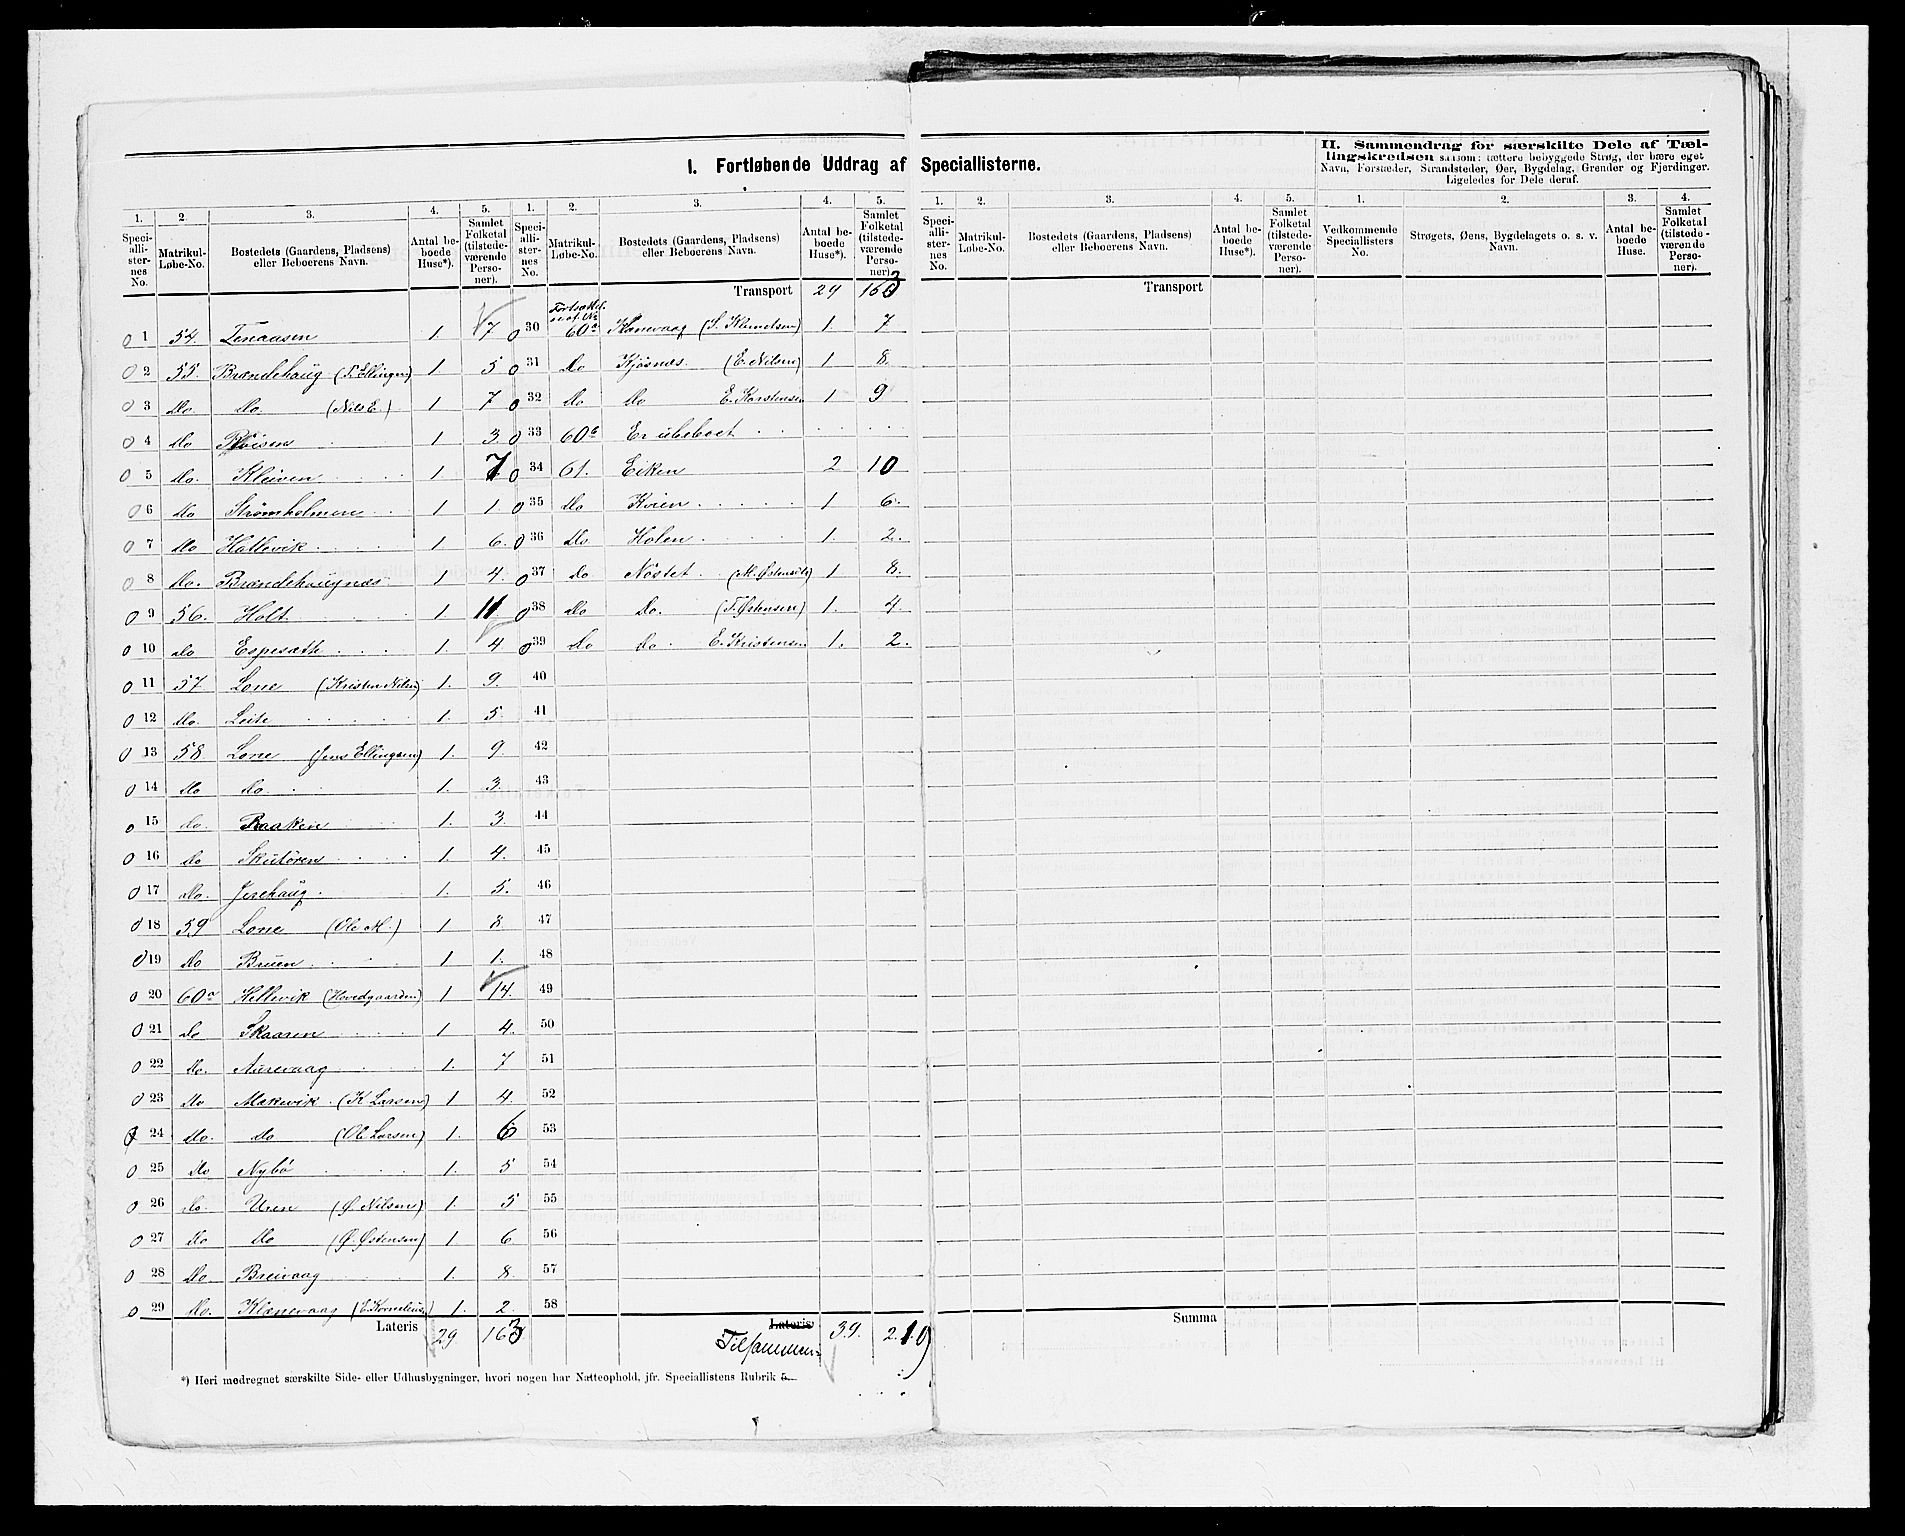 I. Fortløbende Uddrag af Speciallisterne.
II. Sammendrag for særskilte Dele af Tæl-
lingskredsen saasom: tættere bebyggede Strøg, der bære eget
Navn, Forstæder, Strandsteder, Øer, Bygdelag, Grender og Fjerdinger.
Ligeledes for Dele deraf.
1. 2. 3. 4. 5. 1. 2. 3. 4. 5. 1. 2. 3. 4. 5. 1. 2. 3. 4.
Speci-alli-ster-nes No. Matrikul-Løbe-No. Bostedets (Gaardens, Pladsens) eller Beboerens Navn. Antal be-boede Huse*). Samlet Folketal (tilstede-værende Perso-ner).
Speci-alli-ster-nes No. Matrikul-Løbe-No. Bostedets (Gaardens, Pladsens) eller Beboerens Navn. Antal be-boede Huse*). Samlet Folketal (tilstede-værende Perso-ner).
Speci-alli-ster-nes No. Matrikul-Løbe-No. Bostedets (Gaardens, Pladsens) eller Beboerens Navn. Antal be-boede Huse*). Samlet Folketal (tilstede-værende Perso-ner).
Vedkommende Speciallisters No. Strøgets, Øens, Bygdelagets o. s. v. Navn. Antal be-boede Huse. Samlet Folketal (tilstede-værende Perso-ner).
1 54. Tenaasen 1. 7
2 55. Brændehaug (P. Ellingsen) 1 5
3 Do. Do. (Nils E.) 1 7
4 Do 1 3.
5 Do. Kleiven 1 7
6 Do Strømholmen 1 1.
7 Do Hattevik 1 6.
8 Do. Brændehaugnæs 1 4.
9 56. Holt 1. 11
10 Do Espesæth 1. 4
11 57. Lone (Kristen Nilsen) 1. 9.
12 Do. Leite 1. 5.
13 58. Lone (Jens Ellingsen) 1. 9.
14 Do Do. 1. 3.
15 Do. Raaken 1. 3.
16 Do Skutören 1. 4.
17 Do. Jerehaug 1. 5.
18 59 Lone (Ole M.) 1 8
19 Do Bruen 1 1.
20 60a Hellevik (Hovedgaarden) 1 14.
21 Do Skaaren 1 4.
22 Do. Aurevaag 1. 7
23 Do Mækevik (K Larsen) 1 4.
24 Do. Do (Ole Larsen) 1. 6
25 Do Nybö 1. 5
26 Do. Uren (Ø. Nilsen) 1. 5
27 Do Do (Ø. Østensen) 1 6.
28 Do. Breivaag 1. 8.
29 Do. Klænevaag (E. Kornelius) 1. 2.
Lateris 29 163
Transport 29 163
30 Fortsættelse af No 60a Klænevaag (S. Klemetsen) 1. 7
31 Do Kjösnæs. (E. Nilsen) 1 8.
32 Do Do E. Karstensen 1 9
33 60b Er ubeboet
34 61. Eiken 2 10
35 Do Kvien 1 6.
36 Do Holen 1. 2.
37 Do Nöstet (M. Østensen) 1 8.
38 Do Do. (T. Østensen) 1. 4.
39 Do Do. E. Kristensen 1. 2.
40
41
42
43
44
45
46
47
48
49
50
51
52
53
54
55
56
57
58
Lateris
Tilsammen 39. 2.19
Transport
Summa
*) Heri medregnet særskilte Side- eller Udhusbygninger, hvori nogen har Natteophold, jfr. Speciallistens Rubrik 5.